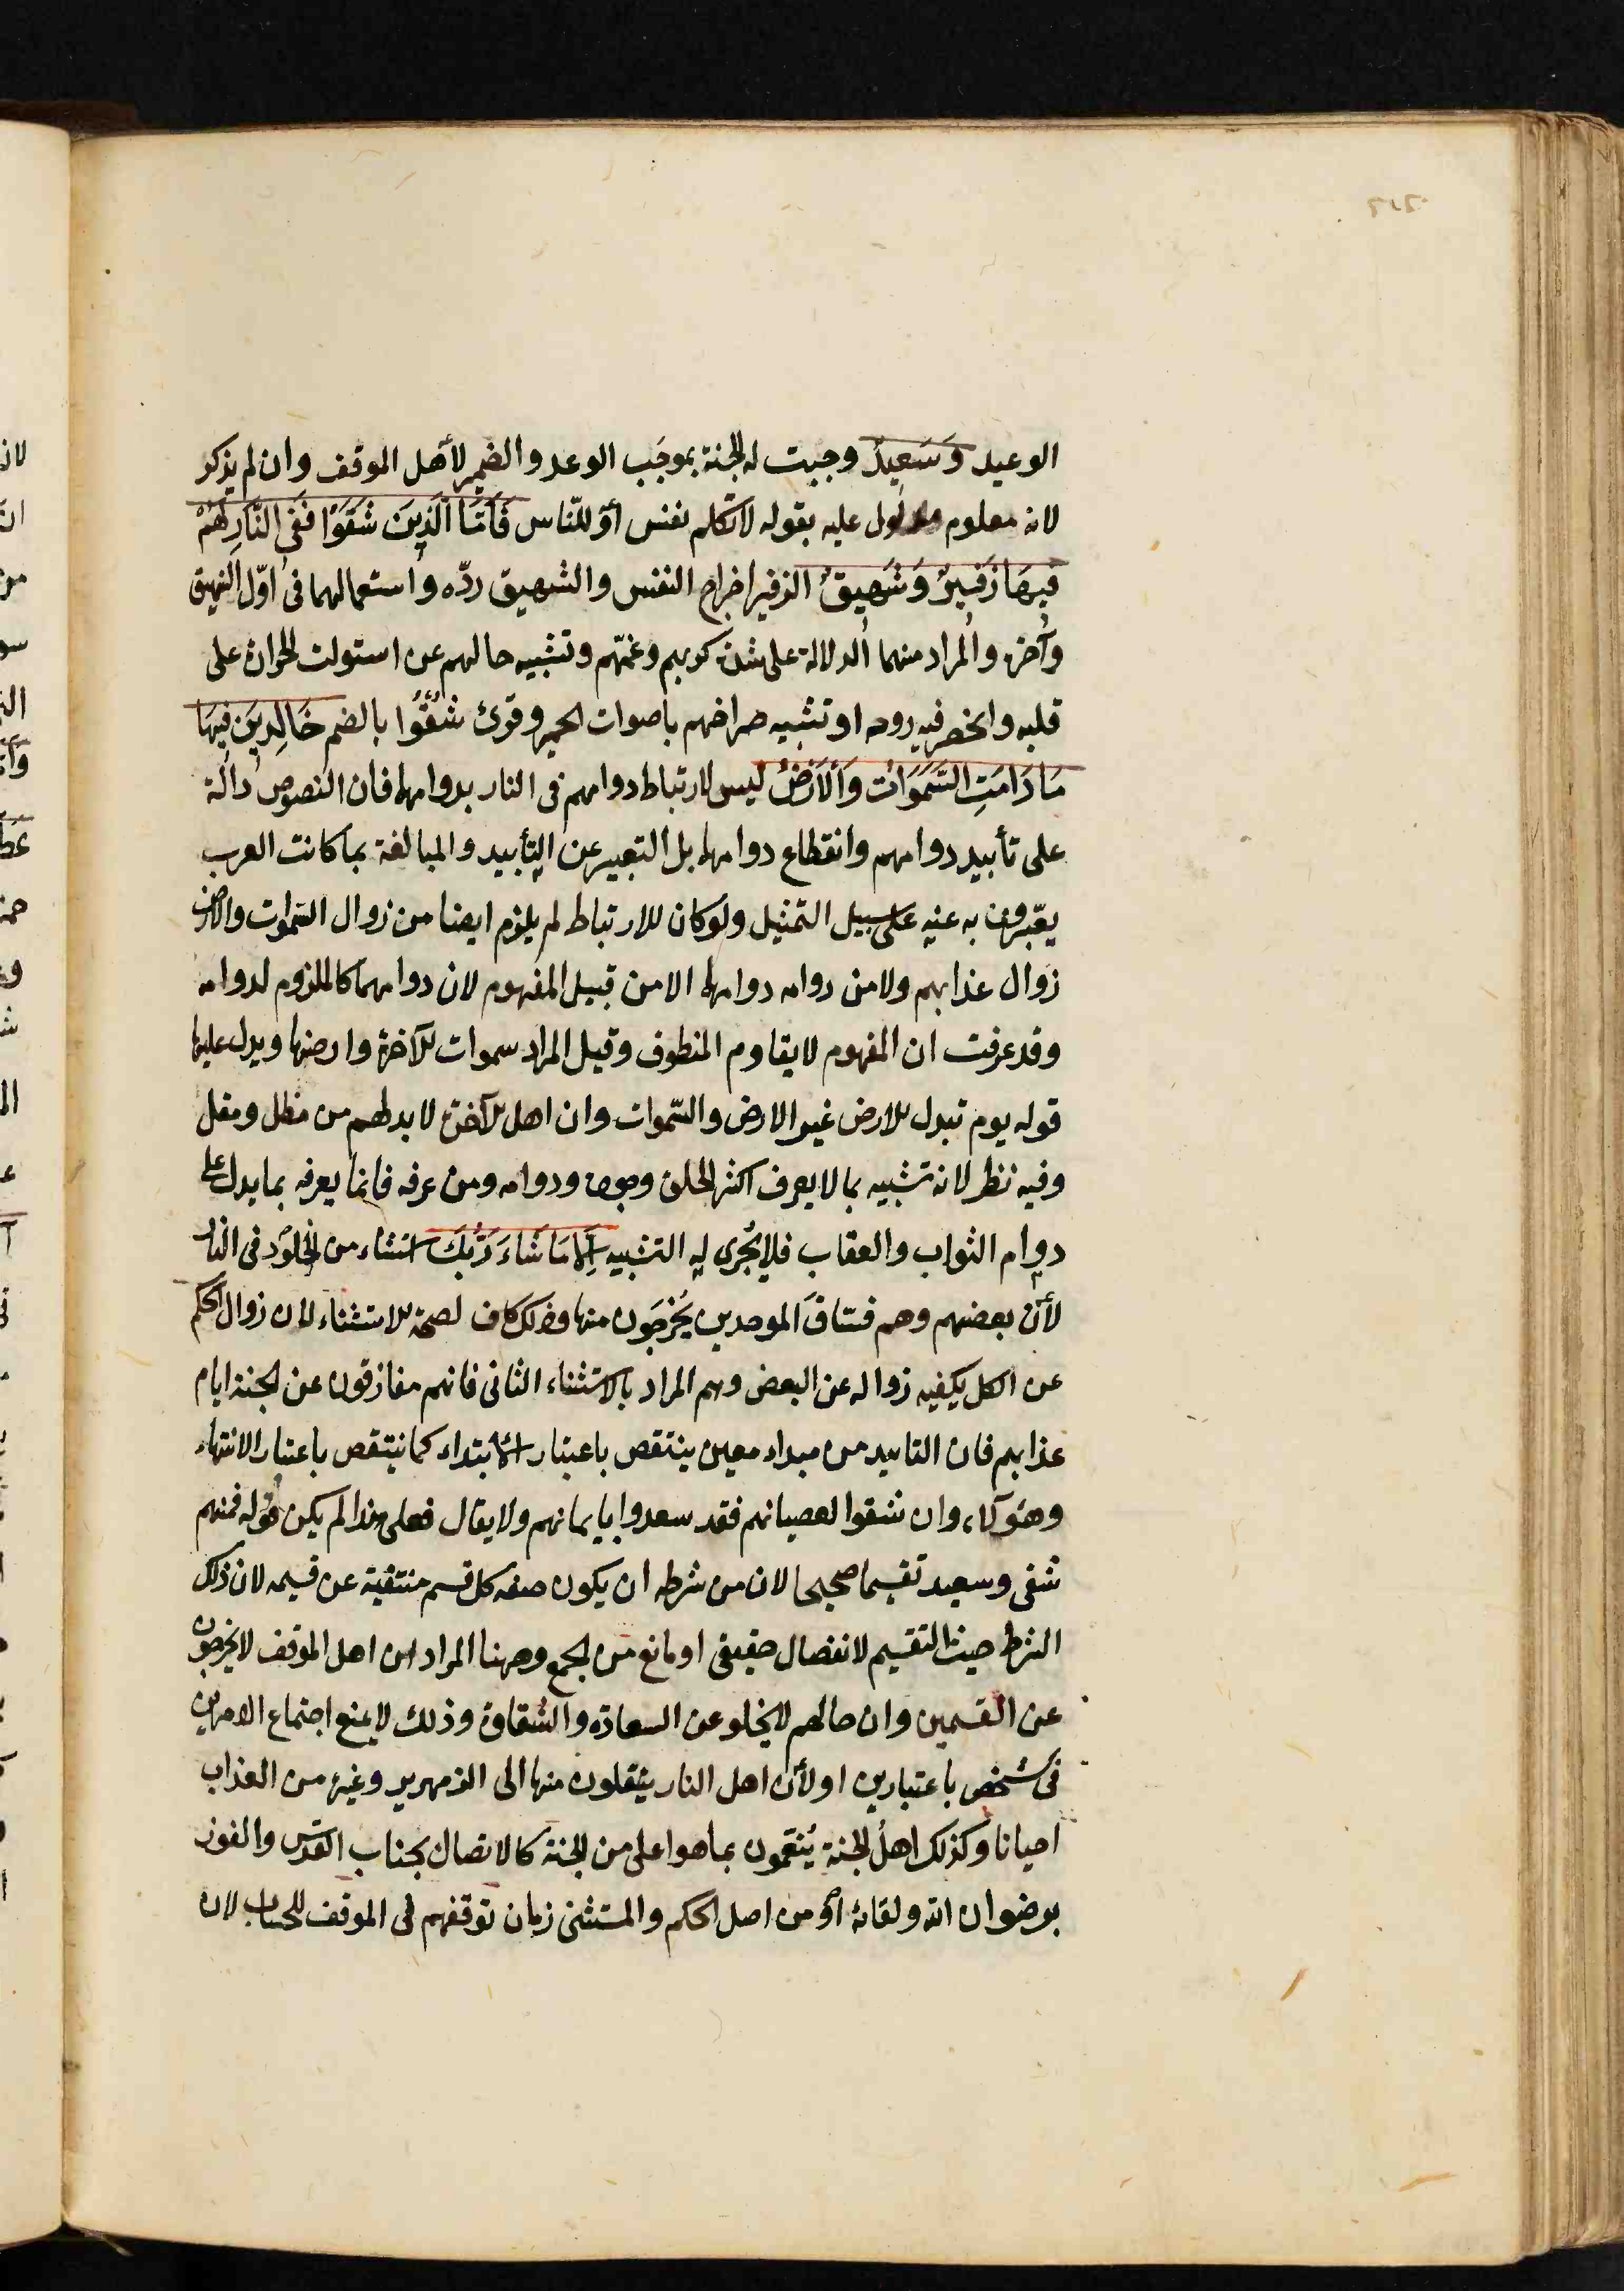 الوعيد وَسَعِيدٌ وجبت له الجنة بموجَب الوعد والضمير لأهل الموقف وان لم يذكر
لانه معلوم مدلول عليه بقوله لاتكلم نفس أو للنّاس فَاَمَّا الَّذِينَ شَقَوْا فَفِي النَّارِ لَهُمْ
فِيهَا زَفِيرٌ وَشَهِيقٌ الزفير اخراج النفس والشهيق ردّه واستعمالهما فى اوّل النهيق
وآخره والمراد منهما الدلالة على شدة كربهم وغمّهم وتشبيه حالهم عن استولت الحرارة على
قلبه وانحصر فيه روحه او تشبيه صراخهم باصوات الحمير وقرئ شُقُوا بالضم خَالِدِينَ فِيهَا
مَا دَامَتِ السَّمَوَاتُ وَالْاَرْضُ ليس لارتباط دوامهم فى النار بدوامهما فان النصوص دالّة
على تأبيد دوامهم وانقطاع دوامهما بل التعبير عن التأبيد والمبالغة بما كانت العرب
يعبّرون به عنه على سبيل التمثيل ولو كان للارتباط لم يلزم ايضا من زوال السموات والارض
زوال عذابهم ولا من دوامه دوامهما الا من قبيل المفهوم لان دوامهما كالملزوم لدوامه
وقد عرفت ان المفهوم لا يقاوم المنطوق وقيل المراد سموات الآخرة وارضها ويدل عليها
قوله يوم تبدل الارض غير الارض والسّموات وان اهل الآخرة لا بد لهم من مظل ومقل
وفيه نظر لانه تشبيه بما لا يعرف اكثر الخلق وجوده ودوامه ومن عرفه فانما يعرفه بما يدل على
دوام الثواب والعقاب فلا يُجرى له التشبيه اِلَّا مَا شَاءَ رَبُّكَ استثناء من الخلود فى النار
لأنّ بعضهم وهم فسّاق الموحدين يُخرجَون منها وذلك كاف لصحة الاستثناء لان زوال الحكم
عن الكل يكفيه زواله عن البعض وهم المراد بالاستثناء الثانى فانهم مفارقون عن الجنة ايام
عذابهم فان التابيد من مبداء معين ينتقص باعتبار الابتداء كما ينتقص باعتبار الانتهاء
وهؤلاء وان شقوا لعصيانهم فقد سعدوا بايمانهم ولا يقال فعلى هذا لم يكن قوله فمنهم
شقى وسعيد تقسيما صحيحا لان من شرطه ان يكون صفة كل قسم منتفية عن قسيمه لان ذلك
الشرط حيث التقسيم لانفصال حقيقى او مانع من الجمع وههنا المراد ان اهل الموقف لايخرجون
عن القسمين وان حالهم لايخلو عن السعادة والشقاوة وذلك لا يمنع اجتماع الامرين
فى شخص باعتبارين او لأن اهل النار ينقلون منها الى الزمهرير وغيره من العذاب
احيانا وكذلك اهلُ الجنة يُنعّمون بما هو اعلى من الجنة كالاتصال بجناب القدّس والفوز
برضوان الله ولقائه أو من اصل الحكم والمستثنى زمان توقفهم فى الموقف للحساب لان